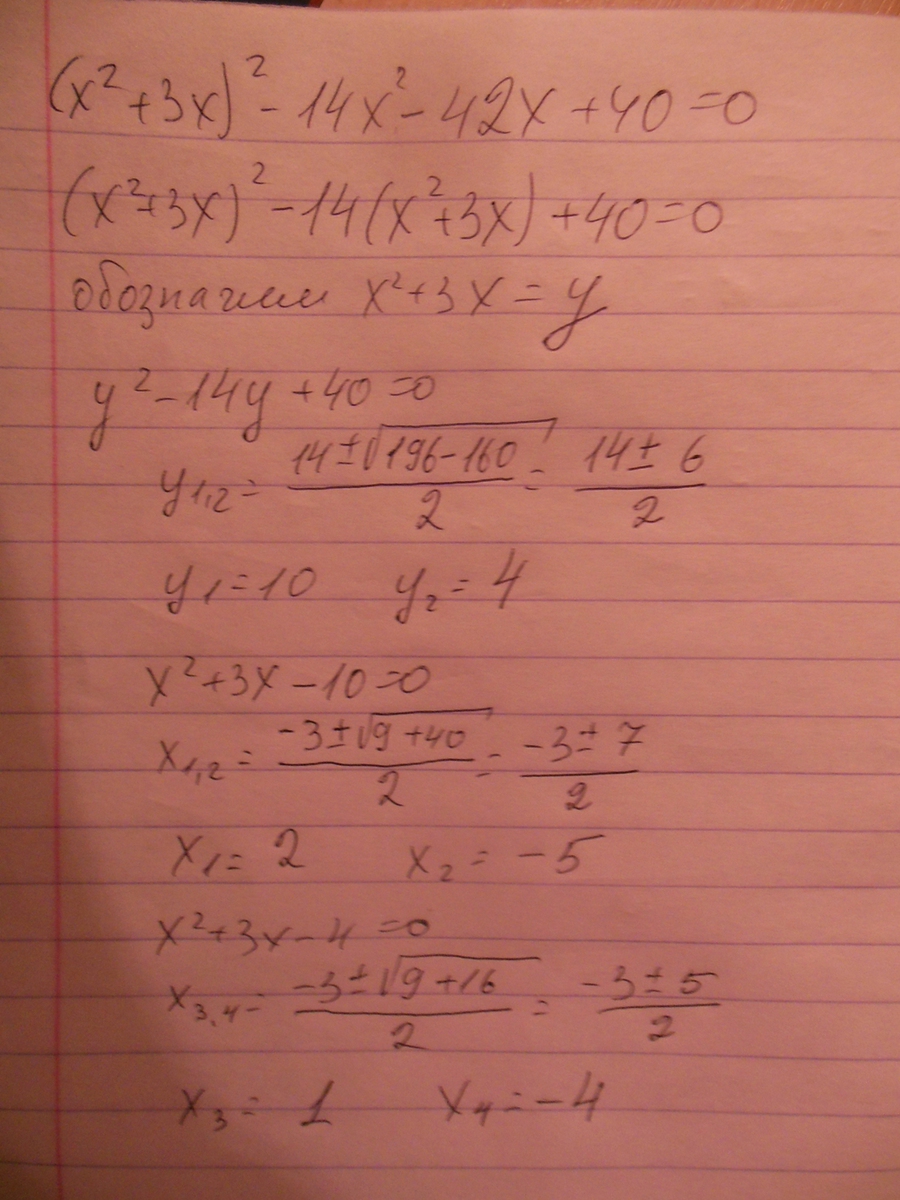 (x²+3x)²-14x²-42x+40=0
(x²+3x)²-14(x²+3x)+40=0
обозначим x²+3x=y
y²-14y+40=0
y1,2= (14±√(196-160))/2 = (14±6)/2
y1=10 y2=4
x²+3x-10=0
x1,2= (-3±√(9+40))/2 = (-3±7)/2
x1=2 x2=-5
x²+3x-4=0
x3,4= (-3±√(9+16))/2 = (-3±5)/2
x3=1 x4=-4